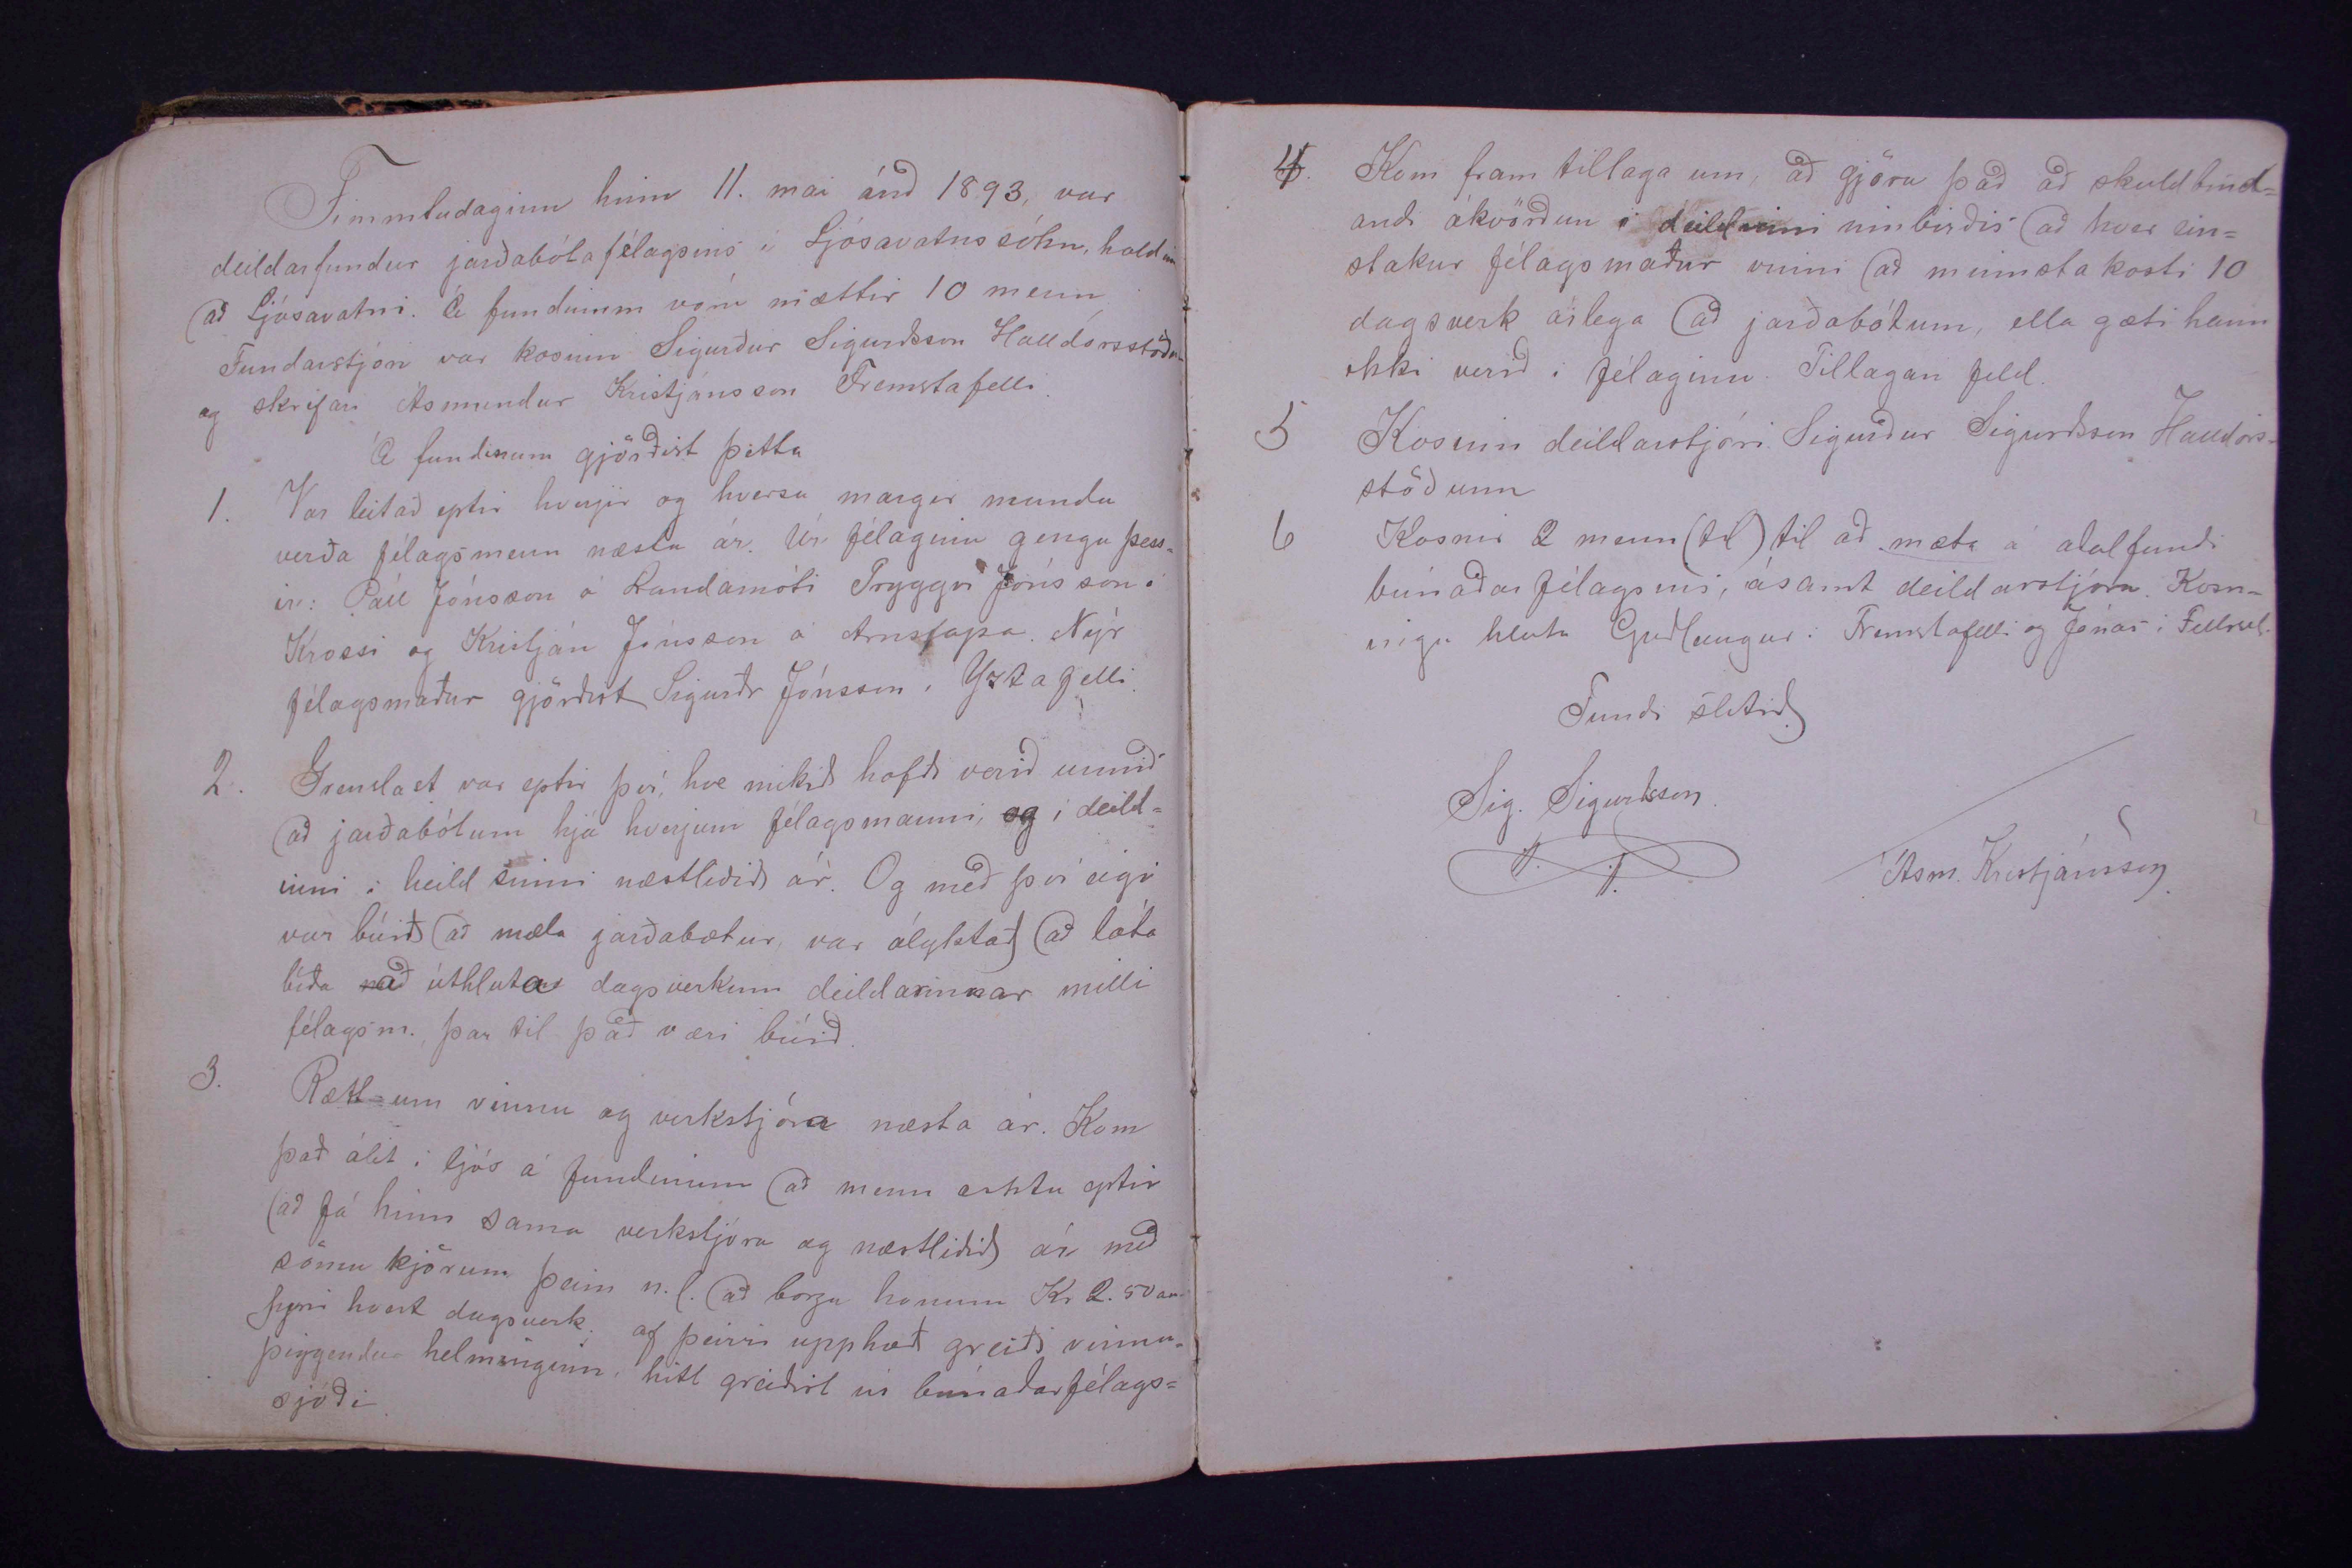 Fimmtudaginn hinn 11. mai árið 1893, var
deildarfundur jarðabótafélagsins í Ljósavatnssókn, haldinn
að Ljósavatni. Á fundinum vóru mættir 10 menn.
Fundarstjóri var kosinn Sigurður Sigurðsson Halldórsstöðum
og skrifari Ásmundur Kristjánsson Fremstafelli.
Á fundinum gjörðist þetta
1. Var leitað eptir hverjir og hversu margir mundu
verða félagsmenn næsta ár. Úr félaginu gengu þess-
ir: Páll Jónsson á Landamóti Tryggvi Jónsson á
Krossi og Kristján Jónsson á Arnstapa. Nýr
félagsmaður gjörðist Sigurðr Jónsson í Yztafelli.
2. Grenslast var eptir því, hve mikið hafði verið unnið
að jarðabótum hjá hverjum félagsmanni, og í deild=
inni í heild sinni næstliðið ár. Og með því eigi
var búið að mæla jarðabætur, var ályktað að láta
bíða að úthluta dagsverkum deildarinnar milli
félagsm., þar til það væri búið.
3. Rætt um vinnu og verkstjóra næsta ár. Kom
það álit í ljós á fundinum að menn æsktu eptir
að fá hinn sama verkstjóra og næstliðið ár með
sömu kjörum þeim n.l. að borga honum Kr 2.50 au
fyrir hvert dagsverk; af þeirri upphæð greiði vinnu-
þiggendur helminginn, hitt greiðist úr búnaðarfélags=
sjóði
4. Kom fram tillaga um, að gjöra það að skuldbind=
andi ákvörðun í deildinni innbirðis að hver ein=
stakur félagsmaður ynni að minnsta kosti 10
dagsverk árlega að jarðabótum, ella gæti hann
ekki verið í félaginu. Tillagan feld.
5 Kosinn deildarstjóri Sigurður Sigurðsson Halldórs-
stöðum
6 Kosnir 2 menn (til) til að mæta á aðalfundi
búnaðarfélagsins, ásamt deildarstjóra. Kosn-
ingu hlutu Guðlaugur í Fremstafelli og Jónas í Fellsseli.
Fundi slitið
Sig. Sigurðsson
Ásm. Kristjánsson